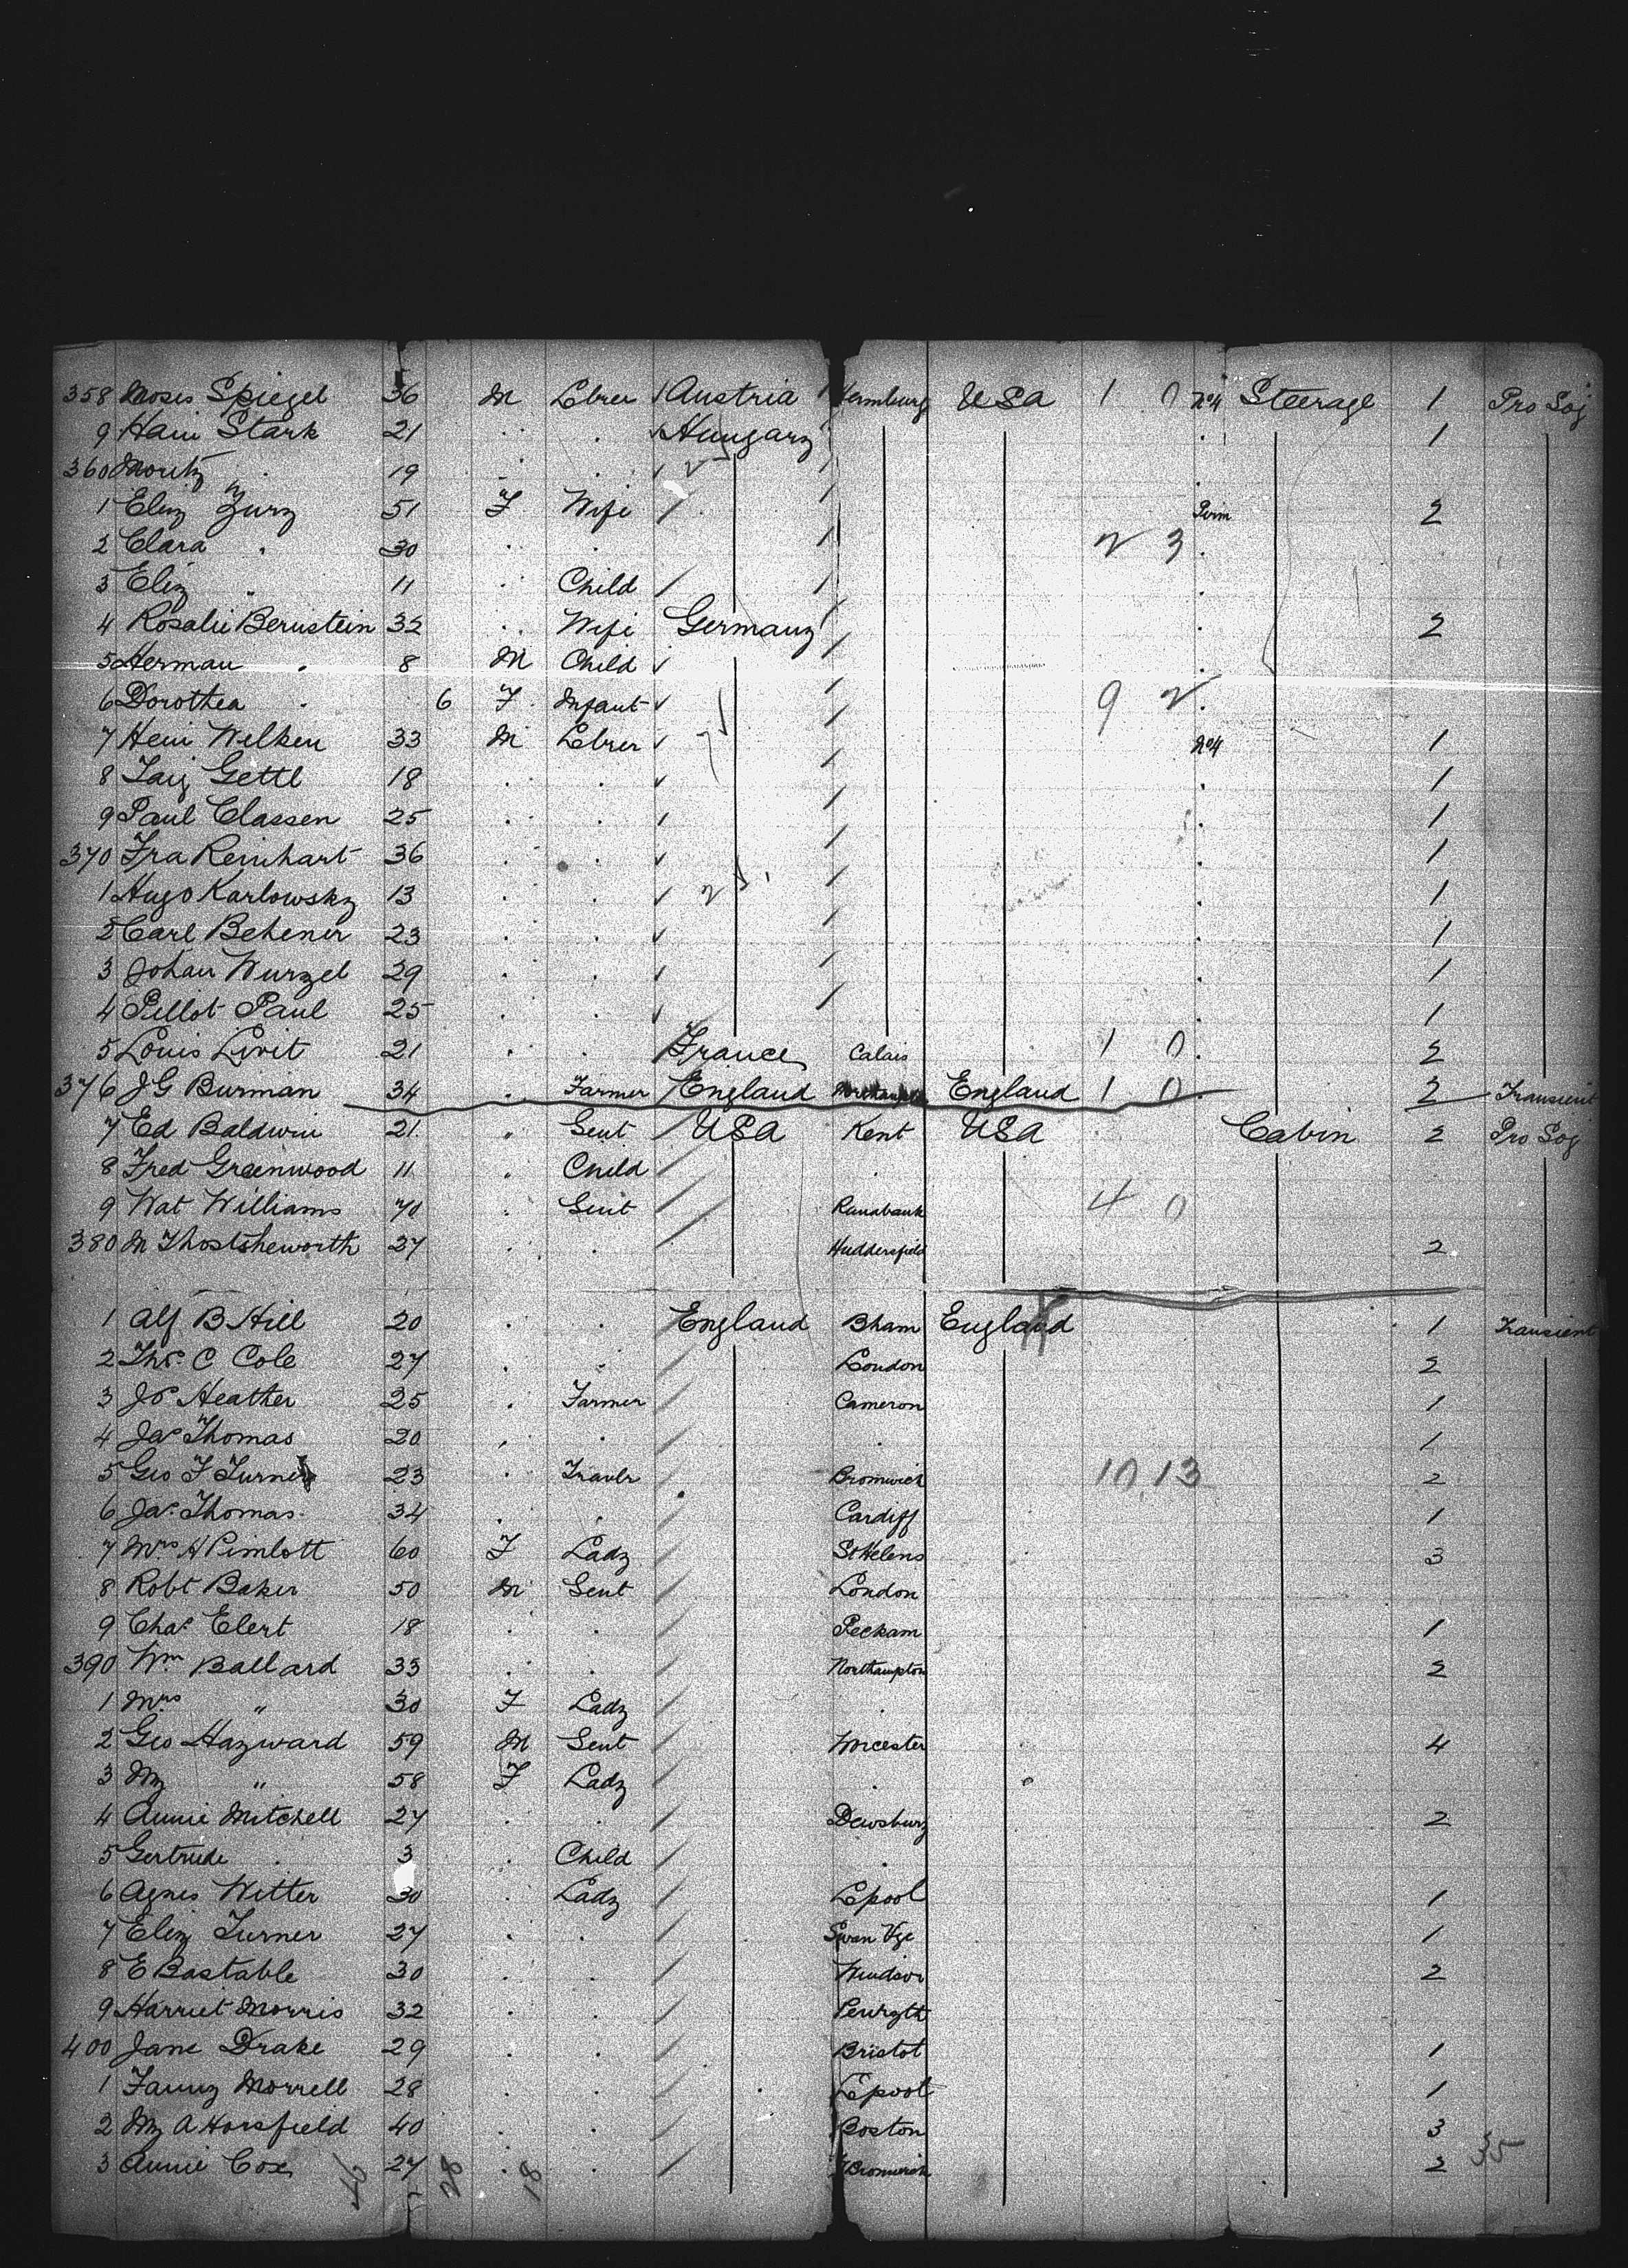 358 Moses Spiegel 36 M Lbrer Austria Hamburg USA 1 0 No4 Steerage 1 Pro Soj
9 Hani Stark 21 . . Hungary . 1
360 Moritz . 19 . .
1 Eliz Zurz 51 F Wife Prim 2
2 Clara . 30 . . 2 3 .
3 Eliz " 11 . Child .
4 Rosalie Bernstein 32 . Wife Germany . 2
5 Herman . 8 M Child .
6 Dorothea . 6 F Infant 9 2 .
7 Hein Welken 33 M Lbrer No4 1
8 Gettl 18 . . . 1
9 Paul Classen 25 . . . 1
370 Fra Reinhart 36 . . . 1
1 Hugo Karlowsky 13 . . . 1
2 Carl Behener 23 . . . 1
3 Johan Wurzel 29 . . . 1
4 Pillot Paul 25 . . . 1
5 Louis Livit 21 . . France Calais 1 0 . 2
376 J G Burman 34 . Farmer England England 1 0 . 2 Transient
7 Ed Baldwin 21 " Gent USA Kent USA Cabin 2 Pro Soj
8 Fred Greenwood 11 " Child
9 Wat Williams 70 " Gent 4 0
380 M 27 . . Huddersfield 2
1 Alf B Hill 20 . . England Bham England 1 Transient
2 Thos C Cole 27 . . London 2
3 Jos Heather 25 . Farmer Cameron 1
4 Jas Thomas 20 . . . 1
5 Geo F Turner 23 . Travlr Bromwich 10 13 2
6 Jas Thomas 34 . . Cardiff 1
7 Mrs A Pimlott 60 F Lady St Helens 3
8 Robt Baker 50 M Gent London
9 Chas Elert 18 . . Peckam 1
390 Wm Ballard 33 . . Northampton 2
1 Mrs " 30 F Lady .
2 Geo Hayward 59 M Gent Worcester 4
3 My " 58 F Lady .
4 Annie Mitchell 27 . . Dewsbury 2
5 Gertrude . 3 . Child .
6 Agnes Witter 30 . Lady Lpool 1
7 Eliz Turner 27 . . Swan Vge 1
8 E Bastable 30 . . Windsor 2
9 Harriet Morris 32 . .
400 Jane Drake 29 . . Bristol 1
1 Fanny Morrell 28 . . Lpool 1
2 My A Horsfield 40 . . Boston 3
3 Annie Cox 27 . . Bromwich 2